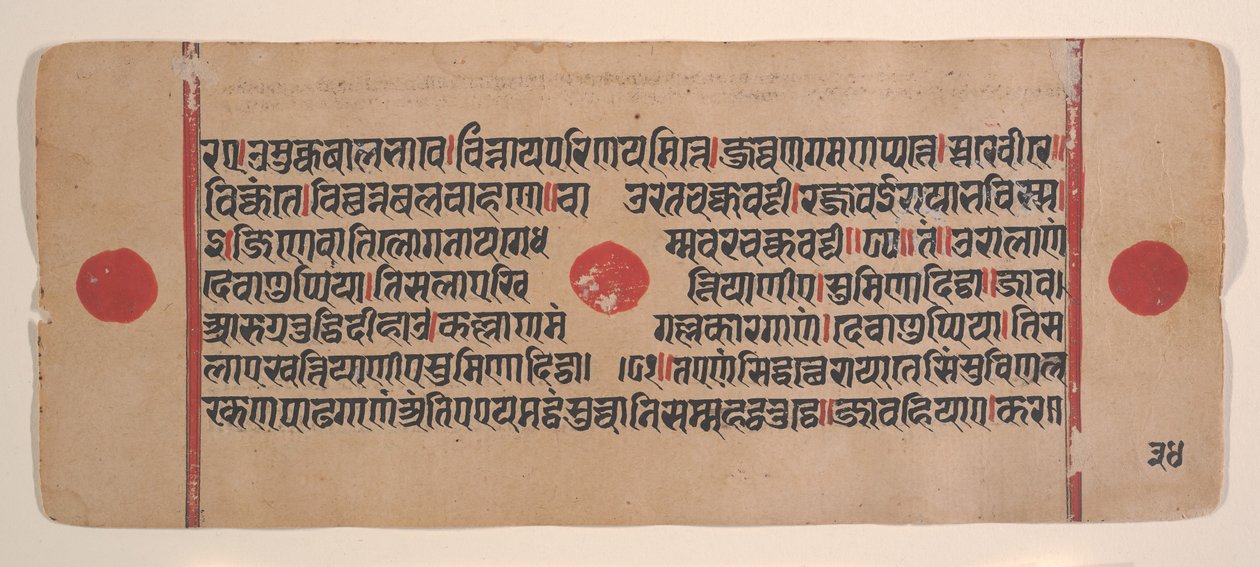 रए।उमुक्कबालभावे।विन्नायपरिणयमित्ते।जुव्वणगमणुप्पत्ते।सूरे वीरे॥
विक्कंते।विच्छिन्नबलवाहणे॥चाउरंतचक्कवट्टी।रज्जवई राया भविस्स
इ।जिणे वा तिलोगनायगे धम्मवरचक्कवट्टी॥८०॥तं॥उराला णं
देवाणुप्पिया।तिसलाए खत्तियाणीए।सुमिणा दिट्ठा॥जाव।
आरुग्गतुट्ठिदीहाउ।कल्लाणमंगल्लकारगा णं।देवाणुप्पिया।तिस
लाए खत्तियाणीए सुमिणा दिट्ठा।।८१॥तए णं सिद्धत्थे राया तेसिं सुविणल
क्खणपाढगाणं अंतिए एयमट्ठं सुच्चा निसम्म हट्ठतुट्ठे॥जाव हियए।कर
३४